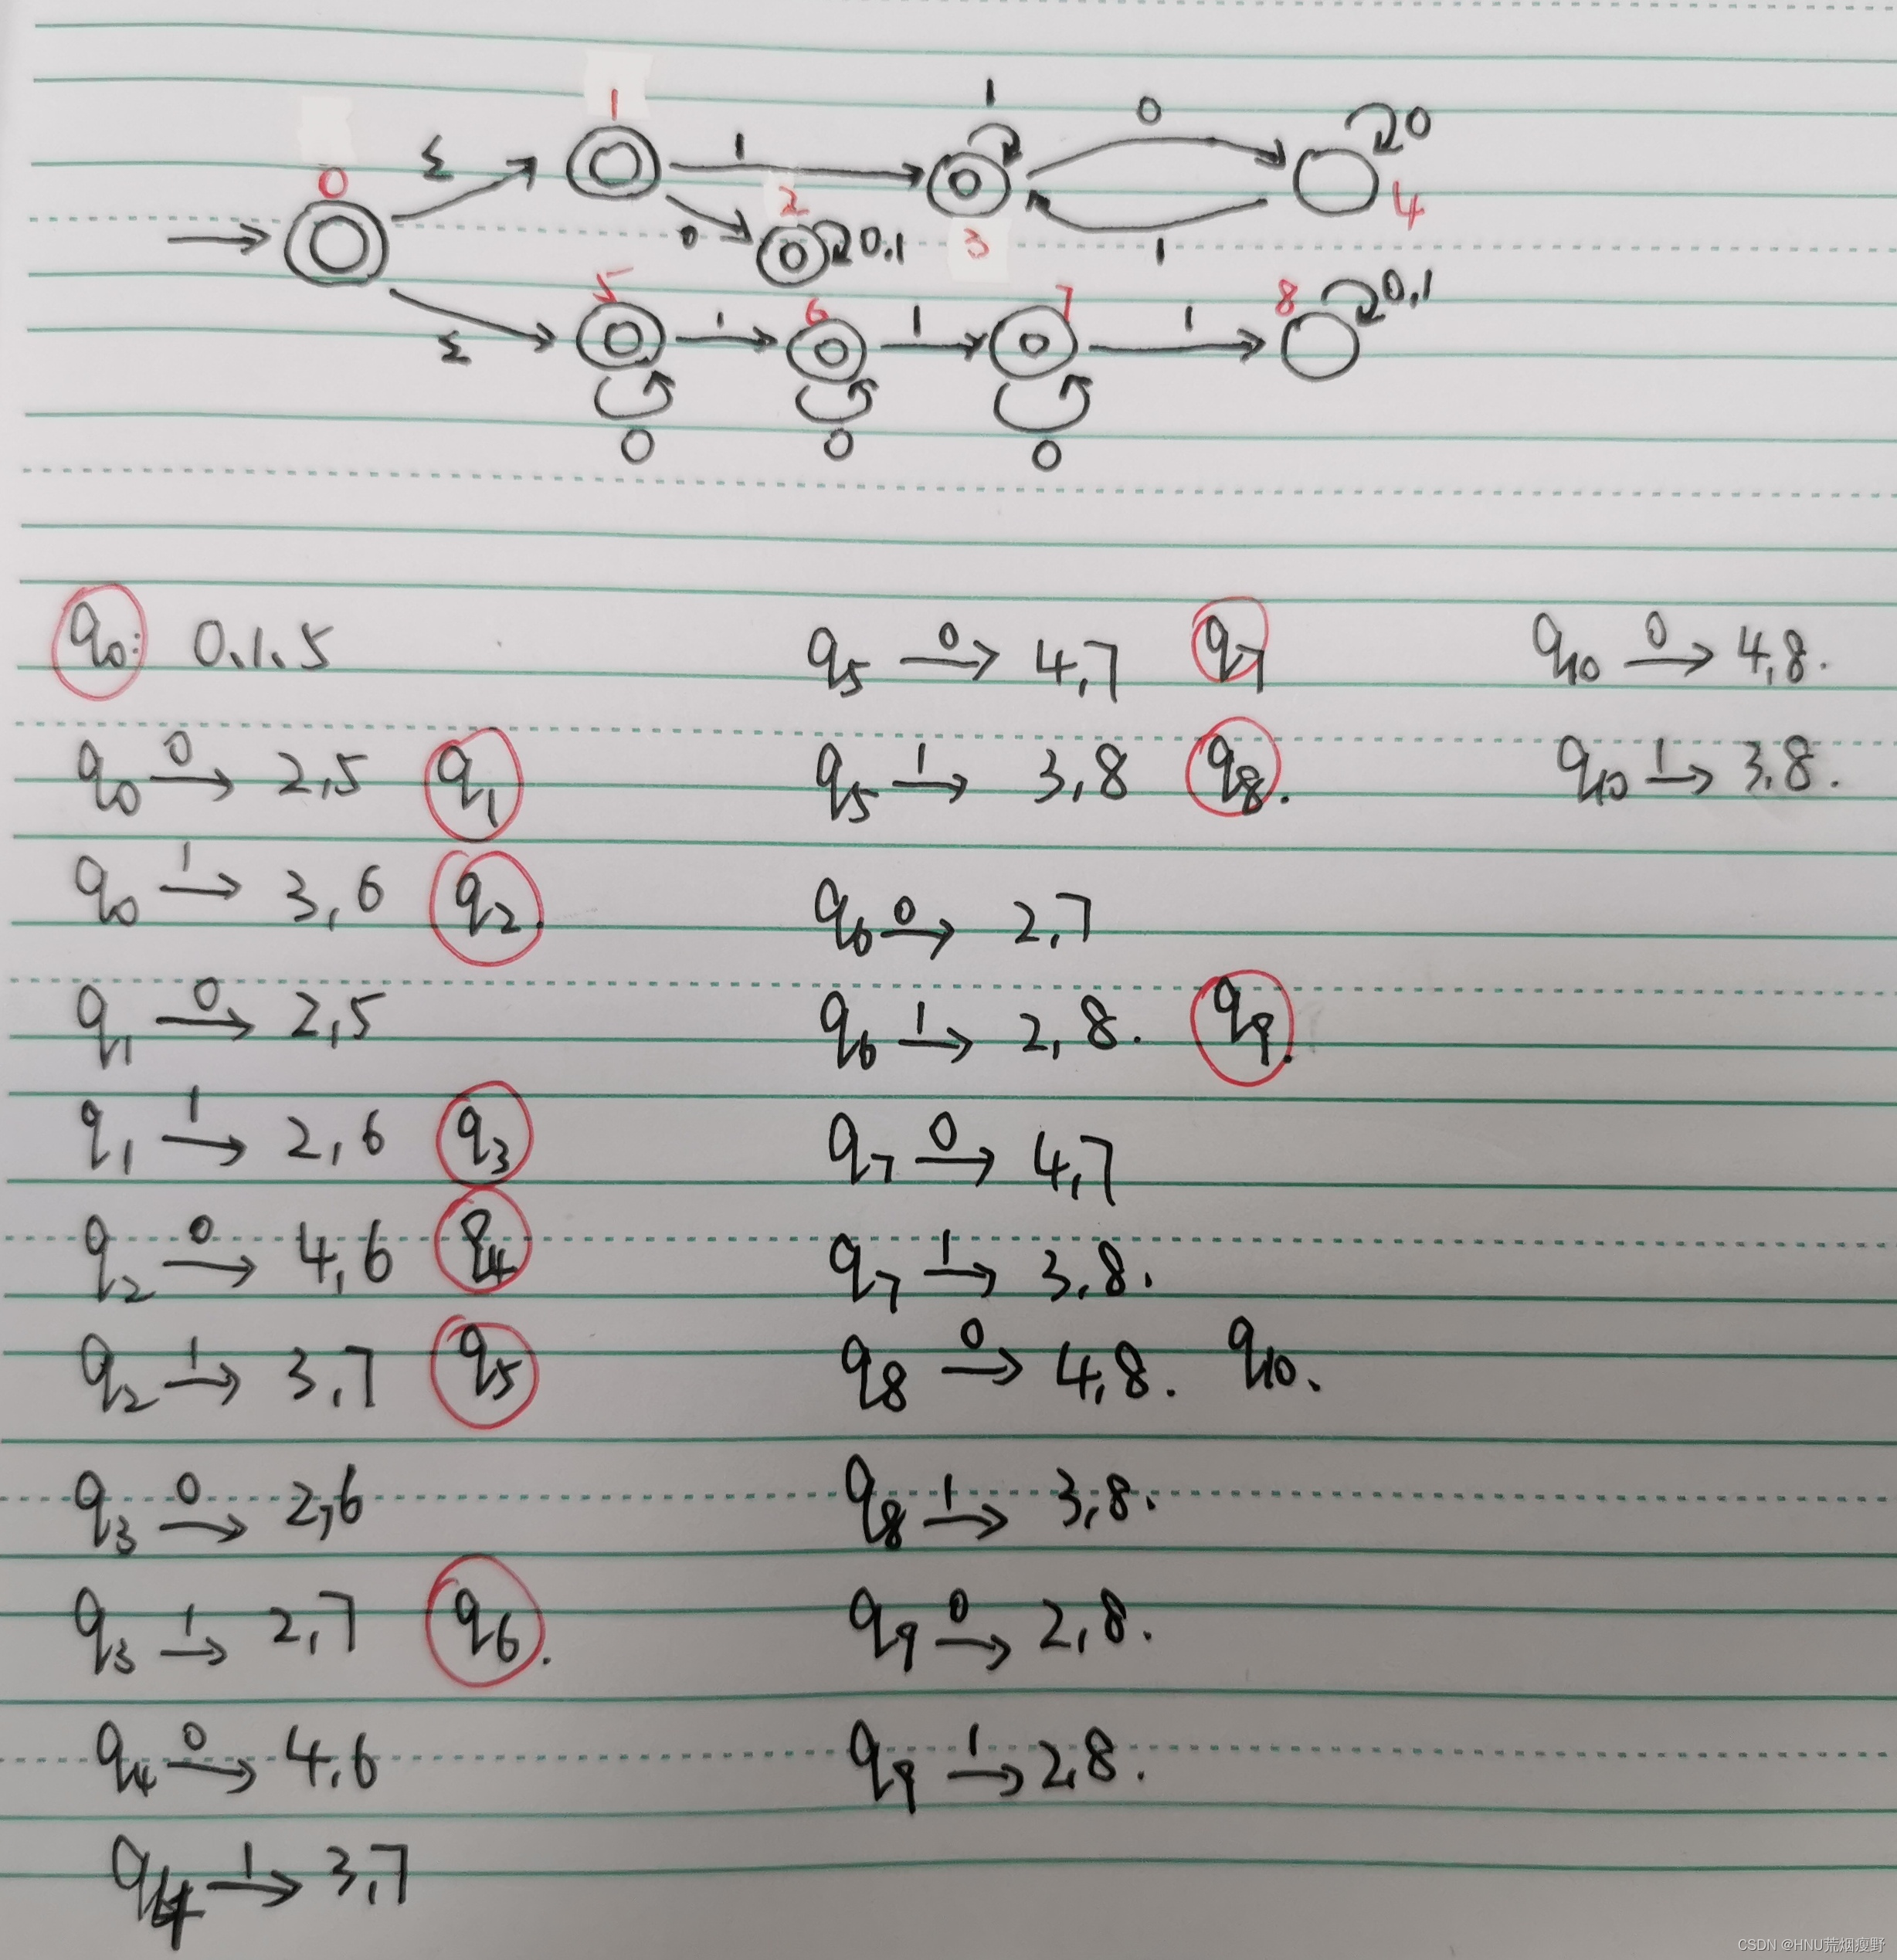 1
1
0
0
0
ε
1
2
0
0,1
3
1
4
5
6
7
8
0,1
ε
1
1
1
0
0
0
q0: 0,1,5
q0 0→ 2,5 q1
q0 1→ 3,6 q2.
q1 0→ 2,5
q1 1→ 2,6 q3
q2 0→ 4,6 q4
q2 1→ 3,7 q5
q3 0→ 2,6
q3 1→ 2,7 q6.
q4 0→ 4,6
q4 1→ 3,7
q5 0→ 4,7 q7
q5 1→ 3,8 q8.
q6 0→ 2,7
q6 1→ 2,8. q9.
q7 0→ 4,7
q7 1→ 3,8.
q8 0→ 4,8. q10.
q8 1→ 3,8.
q9 0→ 2,8.
q9 1→ 2,8.
q10 0→ 4,8.
q10 1→ 3,8.
CSDN @HNU荒烟瘦野